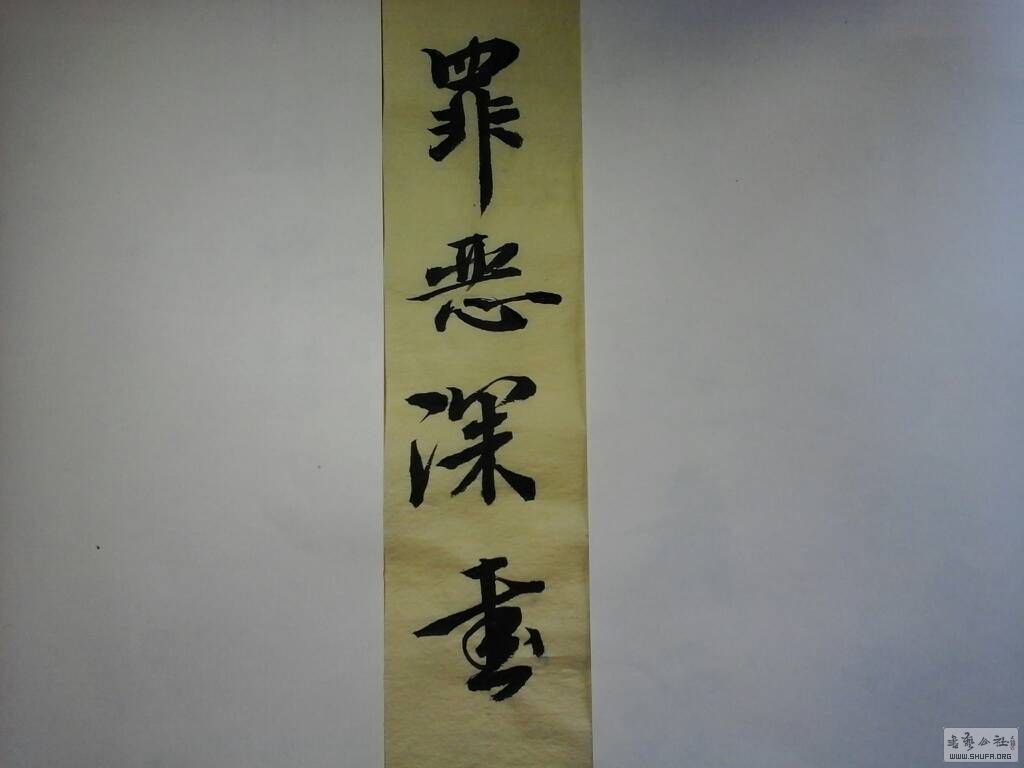 罪恶深重
書藝公社
WWW.SHUFA.ORG